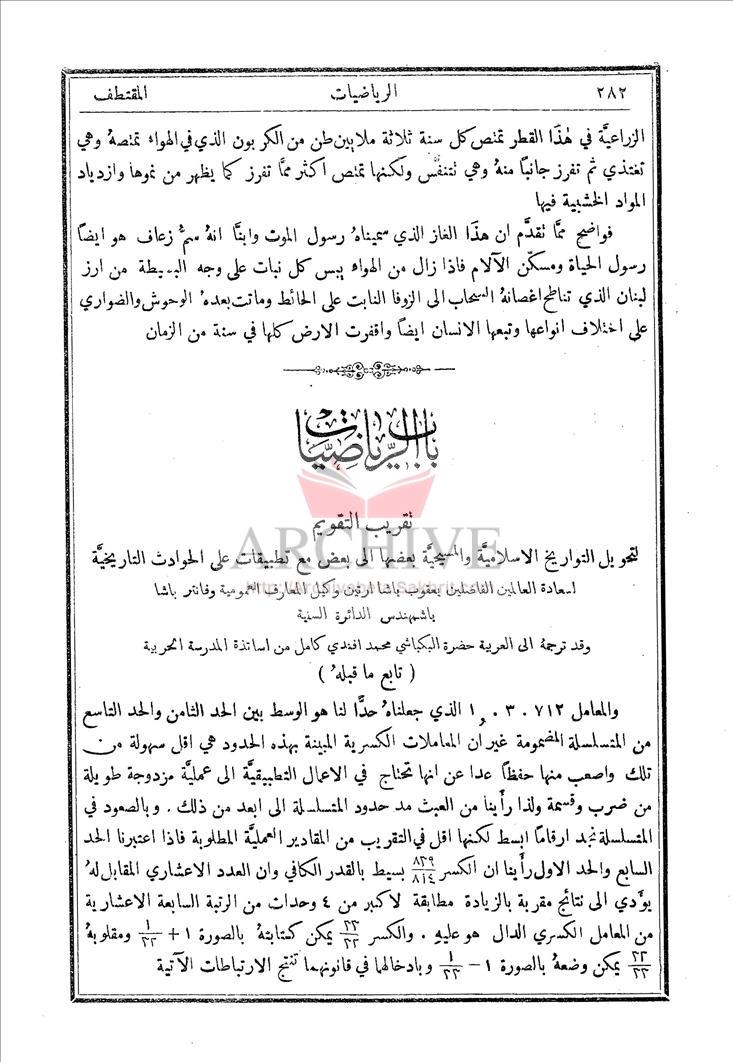 ٢٨٢ الرياضيات المقتطف
الزراعيَّة في هٰذا القطر تمتص كل سنة ثلاثة ملايين طن من الكربون الذي في الهواء تمتصهُ وهي
تغتذي ثم تفرز جانبًا منهُ وهي تتنفَّس ولكنها تمتص اكثر ممَّا تفرز كما يظهر من نموها وازدياد
المواد الخشبية فيها
فواضح ممَّا تقدَّم ان هذا الغاز الذي سميناهُ رسول الموت وابنَّا انهُ سمٌّ زعاف هو ايضًا
رسول الحياة ومسكّن الآلام فاذا زال من الهواء يبس كل نبات على وجه البسيطة من ارز
لبنان الذي تناطح اغصانهُ السحاب الى الزوفا النابت على الحائط وماتت بعدهُ الوحوش والضواري
على اختلاف انواعها وتبعها الانسان ايضًا واقفرت الارض كلها في سنة من الزمان
باب الرياضيات
تقريب التقويم
لتحويل التواريخ الاسلاميَّة والمسيحيَّة بعضها الى بعض مع تطبيقات على الحوادث التاريخيَّة
ARCHIVE
http://Archivebeta.Sakhrit.com
لسعادة العالمين الفاضلين يعقوب باشا ارتين وكيل المعارف العمومية وفانتر باشا
باشمهندس الدائرة السنية
وقد ترجمهُ الى العربية حضرة البكباشي محمد افندي كامل من اساتذة المدرسة الحربية
( تابع ما قبلهُ )
والمعامل ١,٠٣٠٧١٢ الذي جعلناهُ حدًّا لنا هو الوسط بين الحد الثامن والحد التاسع
من المتسلسلة المضمومة غير ان المعاملات الكسرية المبينة بهذه الحدود هي اقل سهولة من
تلك واصعب منها حفظًا عدا عن انها تحتاج في الاعمال التطبيقيَّة الى عمليَّة مزدوجة طويلة
من ضرب وقسمة ولذا رأينا من العبث مد حدود المتسلسلة الى ابعد من ذلك . وبالصعود في
المتسلسلة نجد ارقامًا ابسط لكنها اقل في التقريب من المقادير العمليَّة المطلوبة فاذا اعتبرنا الحد
السابع والحد الاول رأينا ان الكسر ٨٣٩/٨١٤ بسيط بالقدر الكافي وان العدد الاعشاري المقابل لهُ
يؤدي الى نتائج مقربة بالزيادة مطابقة لاكبر من ٤ وحدات من الرتبة السابعة الاعشارية
من المعامل الكسري الدال هو عليهِ . والكسر ٣٣/٣٢ يمكن كتابتهُ بالصورة ١ + ١/٣٢ ومقلوبهُ
٣٢/٣٣ يمكن وضعهُ بالصورة ١ − ١/٣٣ وبادخالهما في قانونهما تنتج الارتباطات الآتية